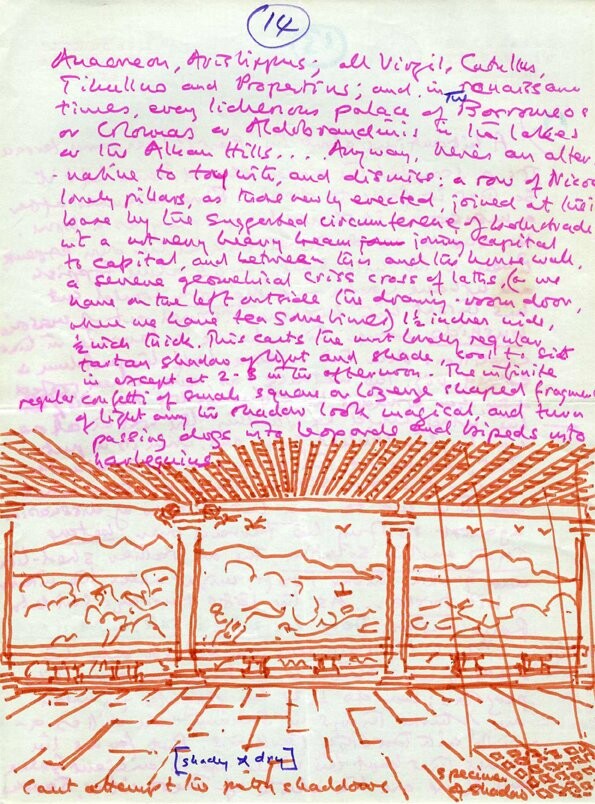 14
Anacreon, Aristippus; all Virgil, Catullus,
Tibullus and Propertius; and in renaissance
times, every licherous palace of The Borromeos
or Colonnas or Aldobrandinis in the lakes
or the Alban Hills.... Anyway, here's an alter-
-native to toy with, and dismiss: a row of
lovely pillars, as those newly erected, joined at their
base by the suggested circumference of balustrade
with a not very heavy beam joining capital
to capital, and between this and the house wall,
a severe geometrical criss cross of laths, (as we
have on the left outside the drawing-room door,
where we have tea sometimes) 1½ inches wide,
½ inch thick. This casts the most lovely regular
tartan shadow of light and shade, cool to sit
in except at 2-3 in the afternoon. The infinite
regular confetti of small square or lozenge shaped fragments
of light among the shadow look magical, and turn
passing dogs into leopards and bipeds into
harlequins.
[shady & dry]
Can't attempt the shaddows
specimen
of shadow